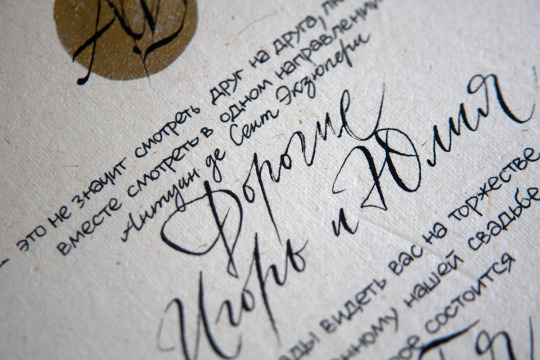 — это не значит смотреть друг на друга,
вместе смотреть в одном направлении
Антуан де Сент Экзюпери
Дорогие
Игорь и Юлия
видеть вас на торжестве
нашей свадьбе
состоится